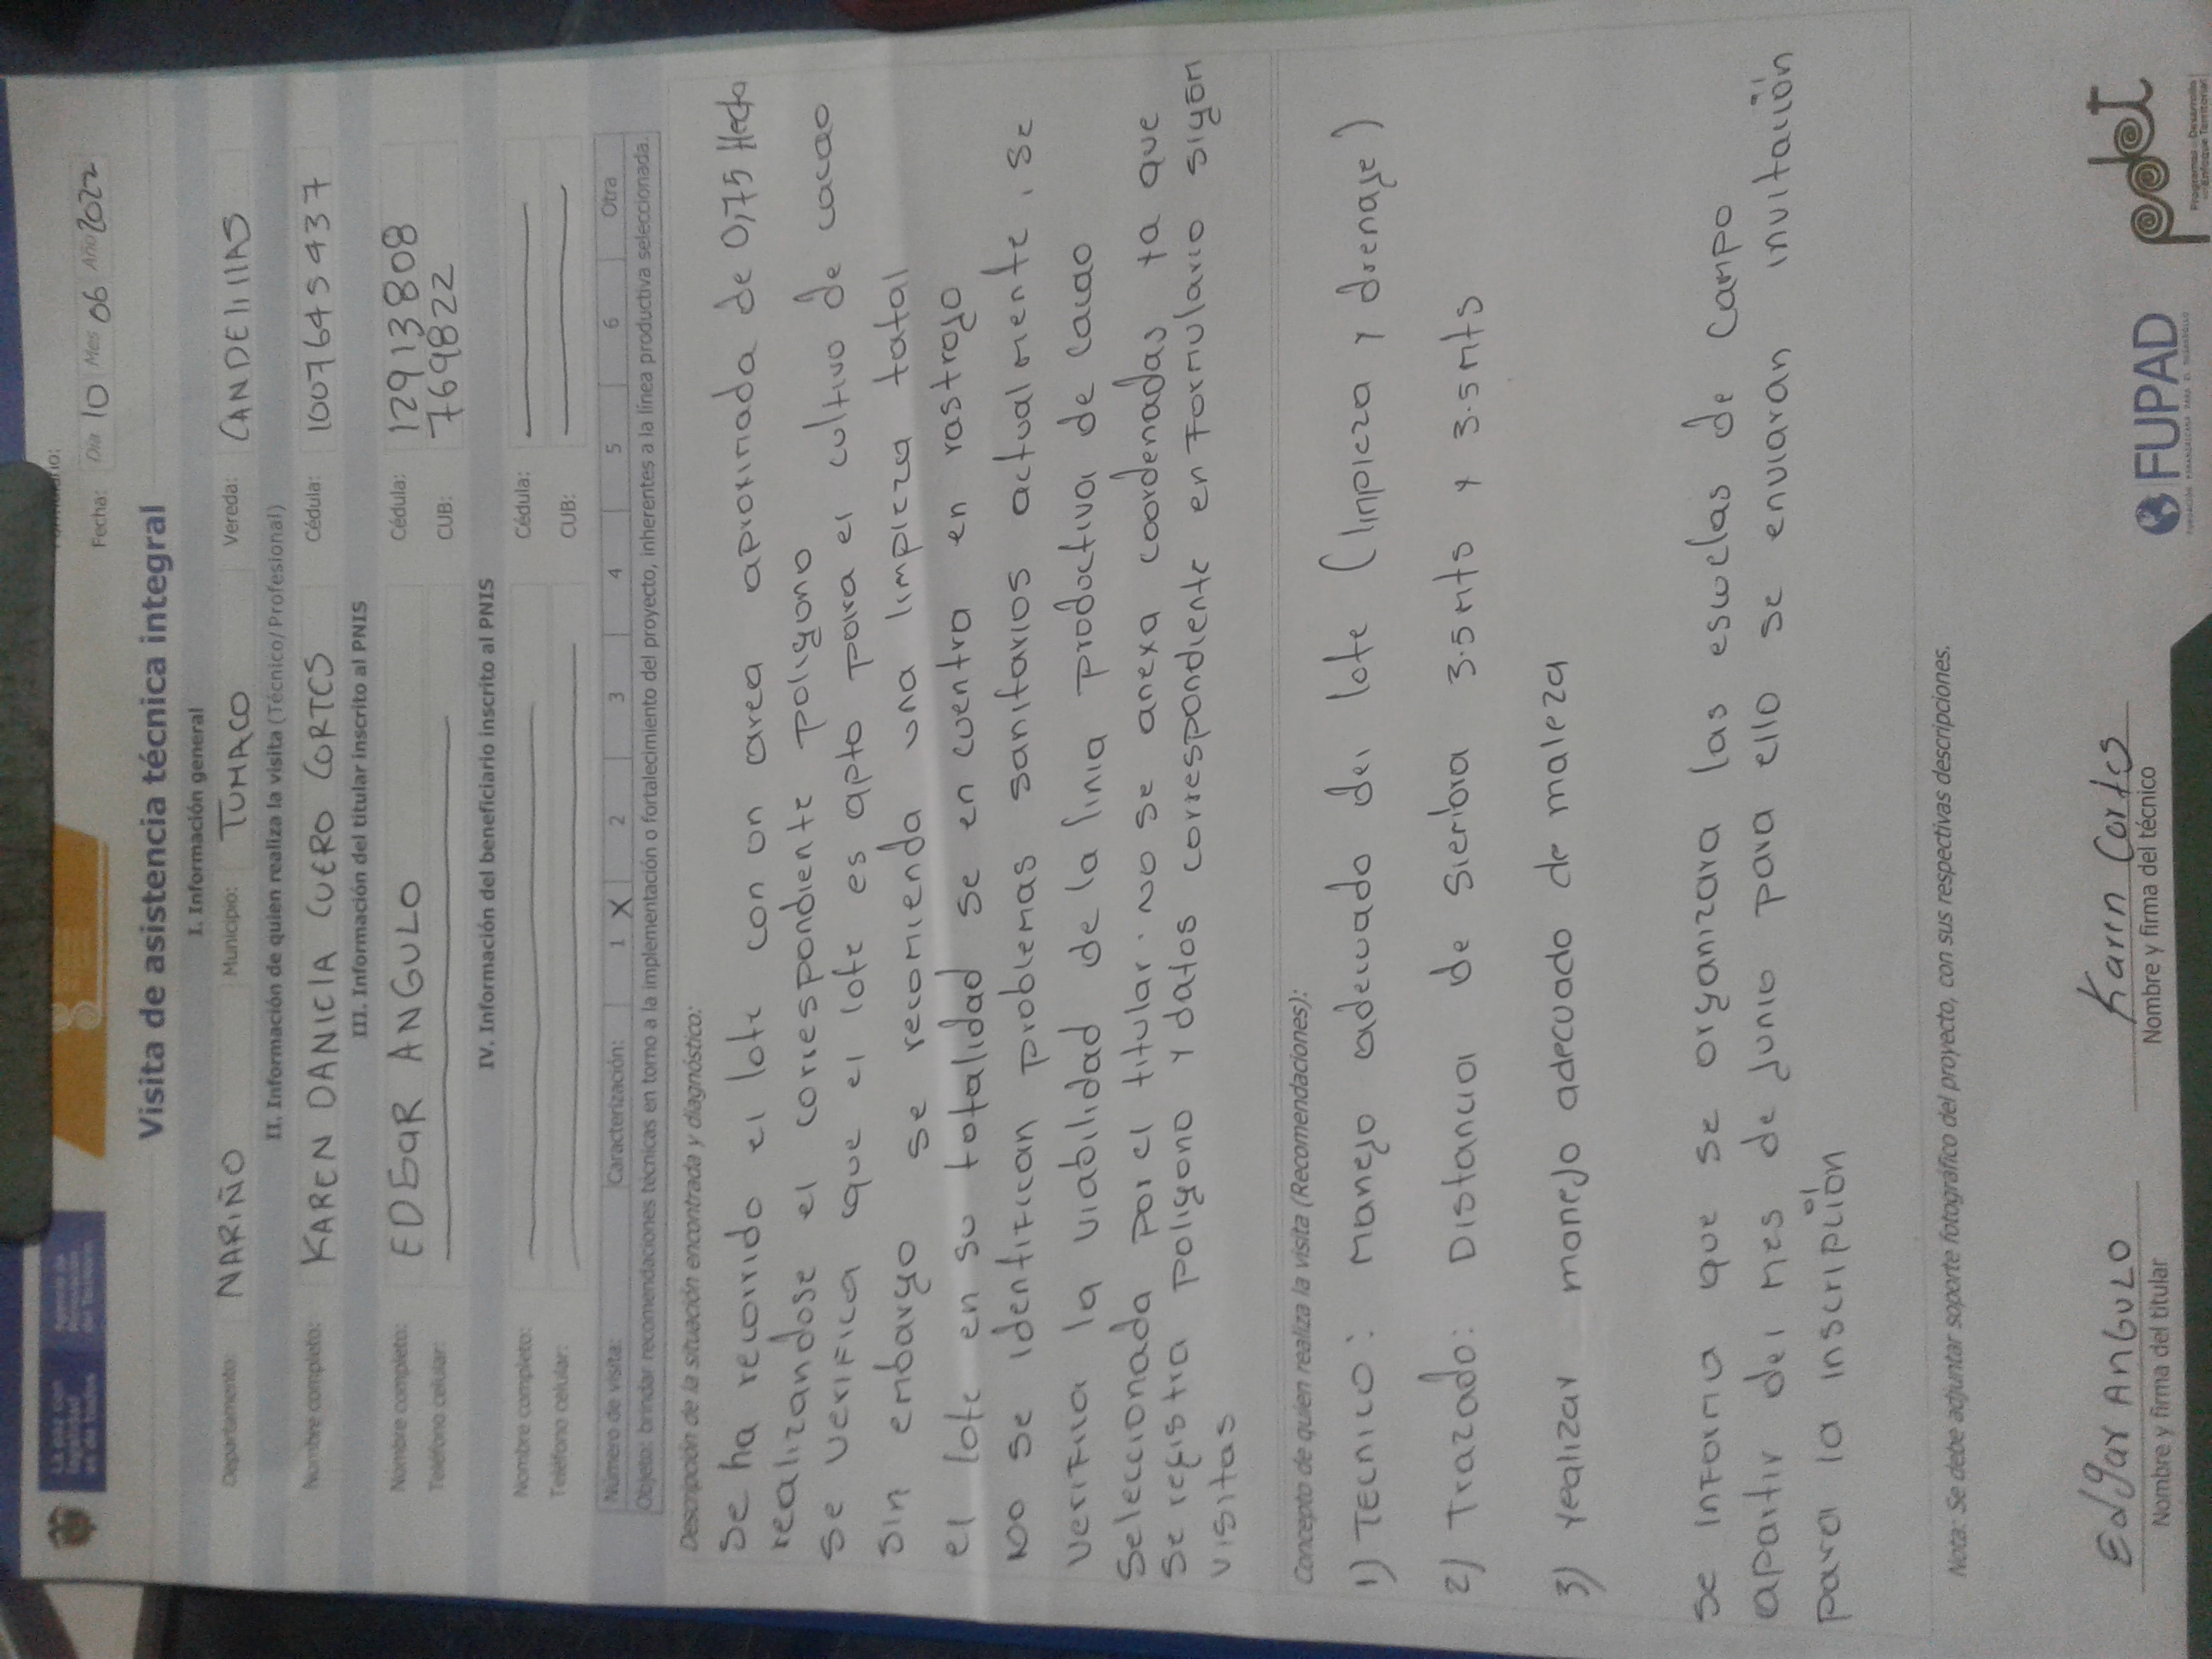 La paz con legalidad es de todos
Agencia de Renovación del Territorio
Fecha: Día 10 Mes 06 Año 2022
Visita de asistencia técnica integral
I. Información general
Departamento: NARIÑO Municipio: TUMACO Vereda: CANDELILLAS
II. Información de quien realiza la visita (Técnico/Profesional)
Nombre completo: KAREN DANIELA CUERO CORTES Cédula: 1007645437
III. Información del titular inscrito al PNIS
Nombre completo: EDGAR ANGULO Cédula: 12913808
Teléfono celular: CUB: 769822
IV. Información del beneficiario inscrito al PNIS
Nombre completo: Cédula:
Teléfono celular: CUB:
Número de visita: Caracterización: 1 X 2 3 4 5 6 Otra
Objeto: brindar recomendaciones técnicas en torno a la implementación o fortalecimiento del proyecto, inherentes a la línea productiva seleccionada.
Descripción de la situación encontrada y diagnóstico:
Se ha recorido el lote con un area aproximada de 0,75 Hecta
realizandose el correspondiente poligono
Se verifica que el lote es apto para el cultivo de cacao
sin embargo se recomienda una limpieza total
el lote en su totalidad se en cuentra en rastrojo
No se identifican problemas sanitarios actualmente, se
verifica la viabilidad de la linia productiva de cacao
Seleccionada por el titular. No se anexa coordenadas ya que
se registra poligono y datos correspondiente en formulario sigon
visitas
Concepto de quien realiza la visita (Recomendaciones):
1) Tecnico: manejo adecuado del lote (limpieza y drenaje)
2) Trazado: Distancia de siembra 3.5 mts x 3.5 mts
3) realizar manejo adecuado de maleza
se informa que se organizara las escuelas de campo.
apartir del mes de junio para ello se enviaran invitación
para la inscripción
Nota: Se debe adjuntar soporte fotográfico del proyecto, con sus respectivas descripciones.
Edgar ANGULO Karen Cortes
Nombre y firma del titular Nombre y firma del técnico
FUPAD
FUNDACIÓN PANAMERICANA PARA EL DESARROLLO
pdet
Programas de Desarrollo con Enfoque Territorial